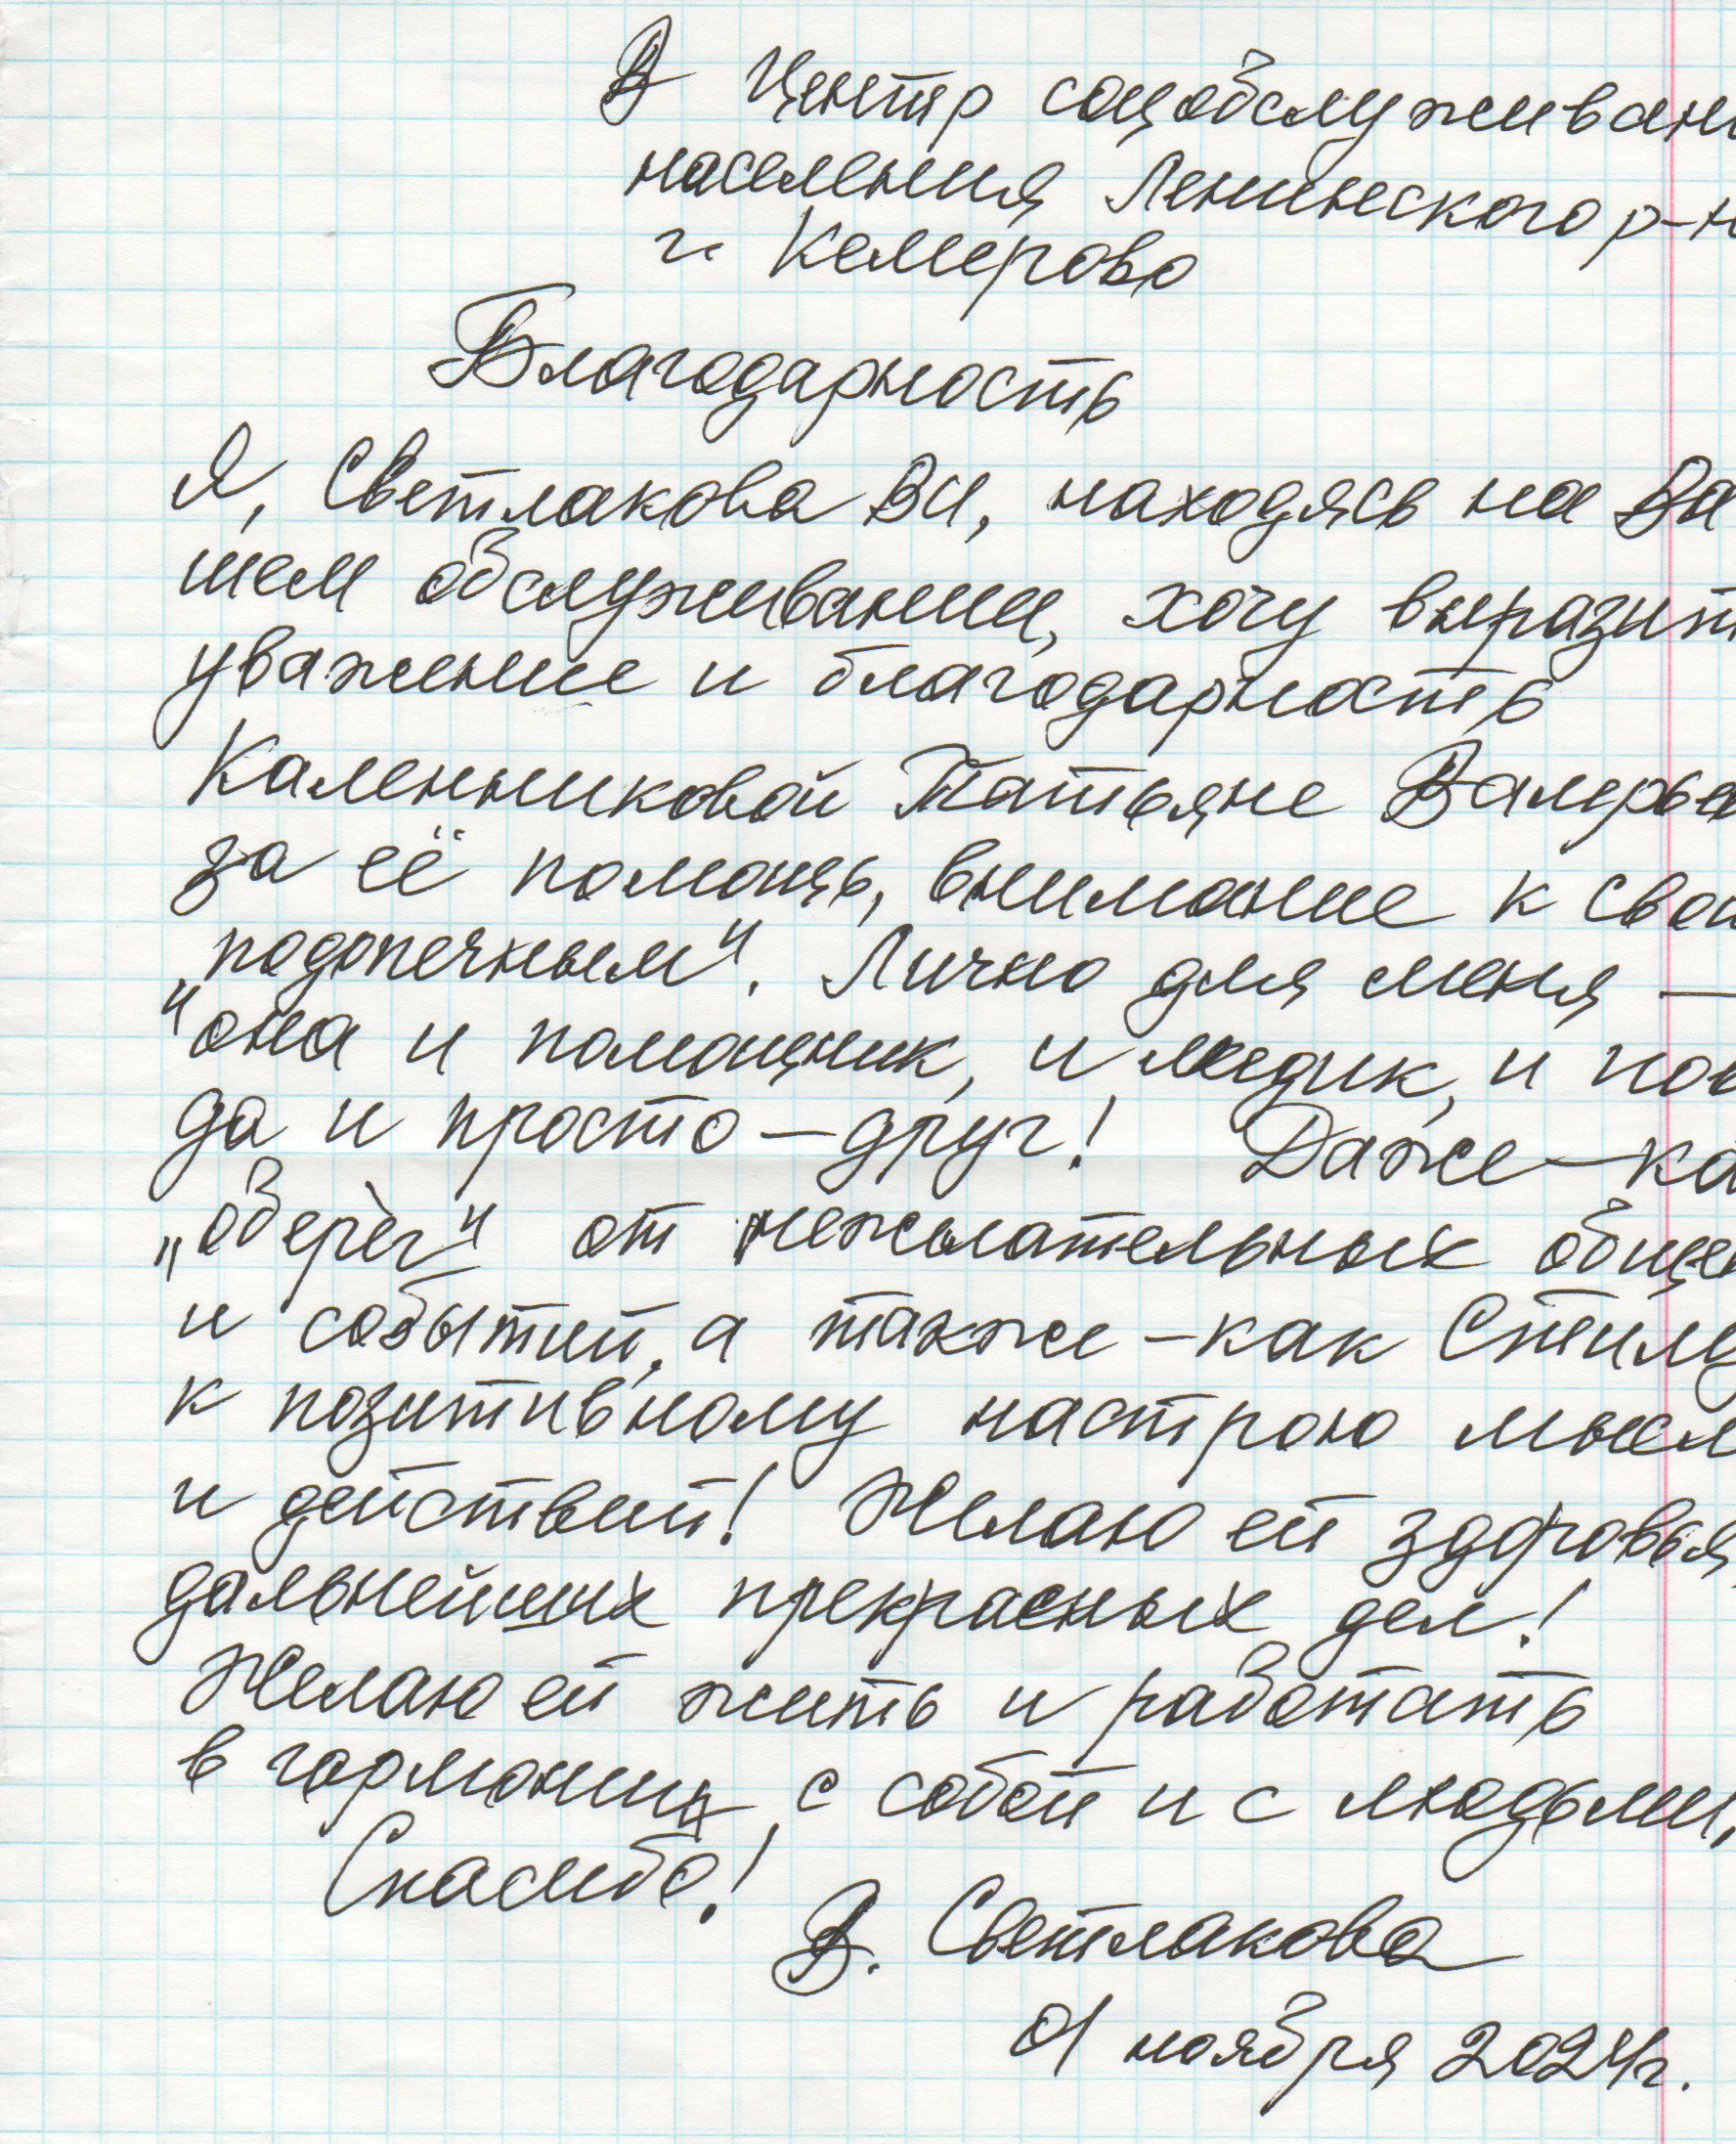 В Центр соцобслуживани
населения Ленинского р-н
г. Кемерово
Благодарность
Я, Светлакова ВИ, находясь на Ва
шем обслуживании, хочу выразит
уважение и благодарность
Каленниковой Татьяне Валерье
за её помощь, внимание к свои
„подопечным“. Лично для меня —
она и помощник, и медик, и пов
да и просто — друг! Даже — ка
„оберег“ от нежелательных общен
и событий, а также — как Стиму
к позитивному настрою мысл
и действий! Желаю ей здоровья,
дальнейших прекрасных дел!
Желаю ей жить и работать
в гармонии с собой и с людьми,
Спасибо!
В. Светлакова
01 ноября 2024г.